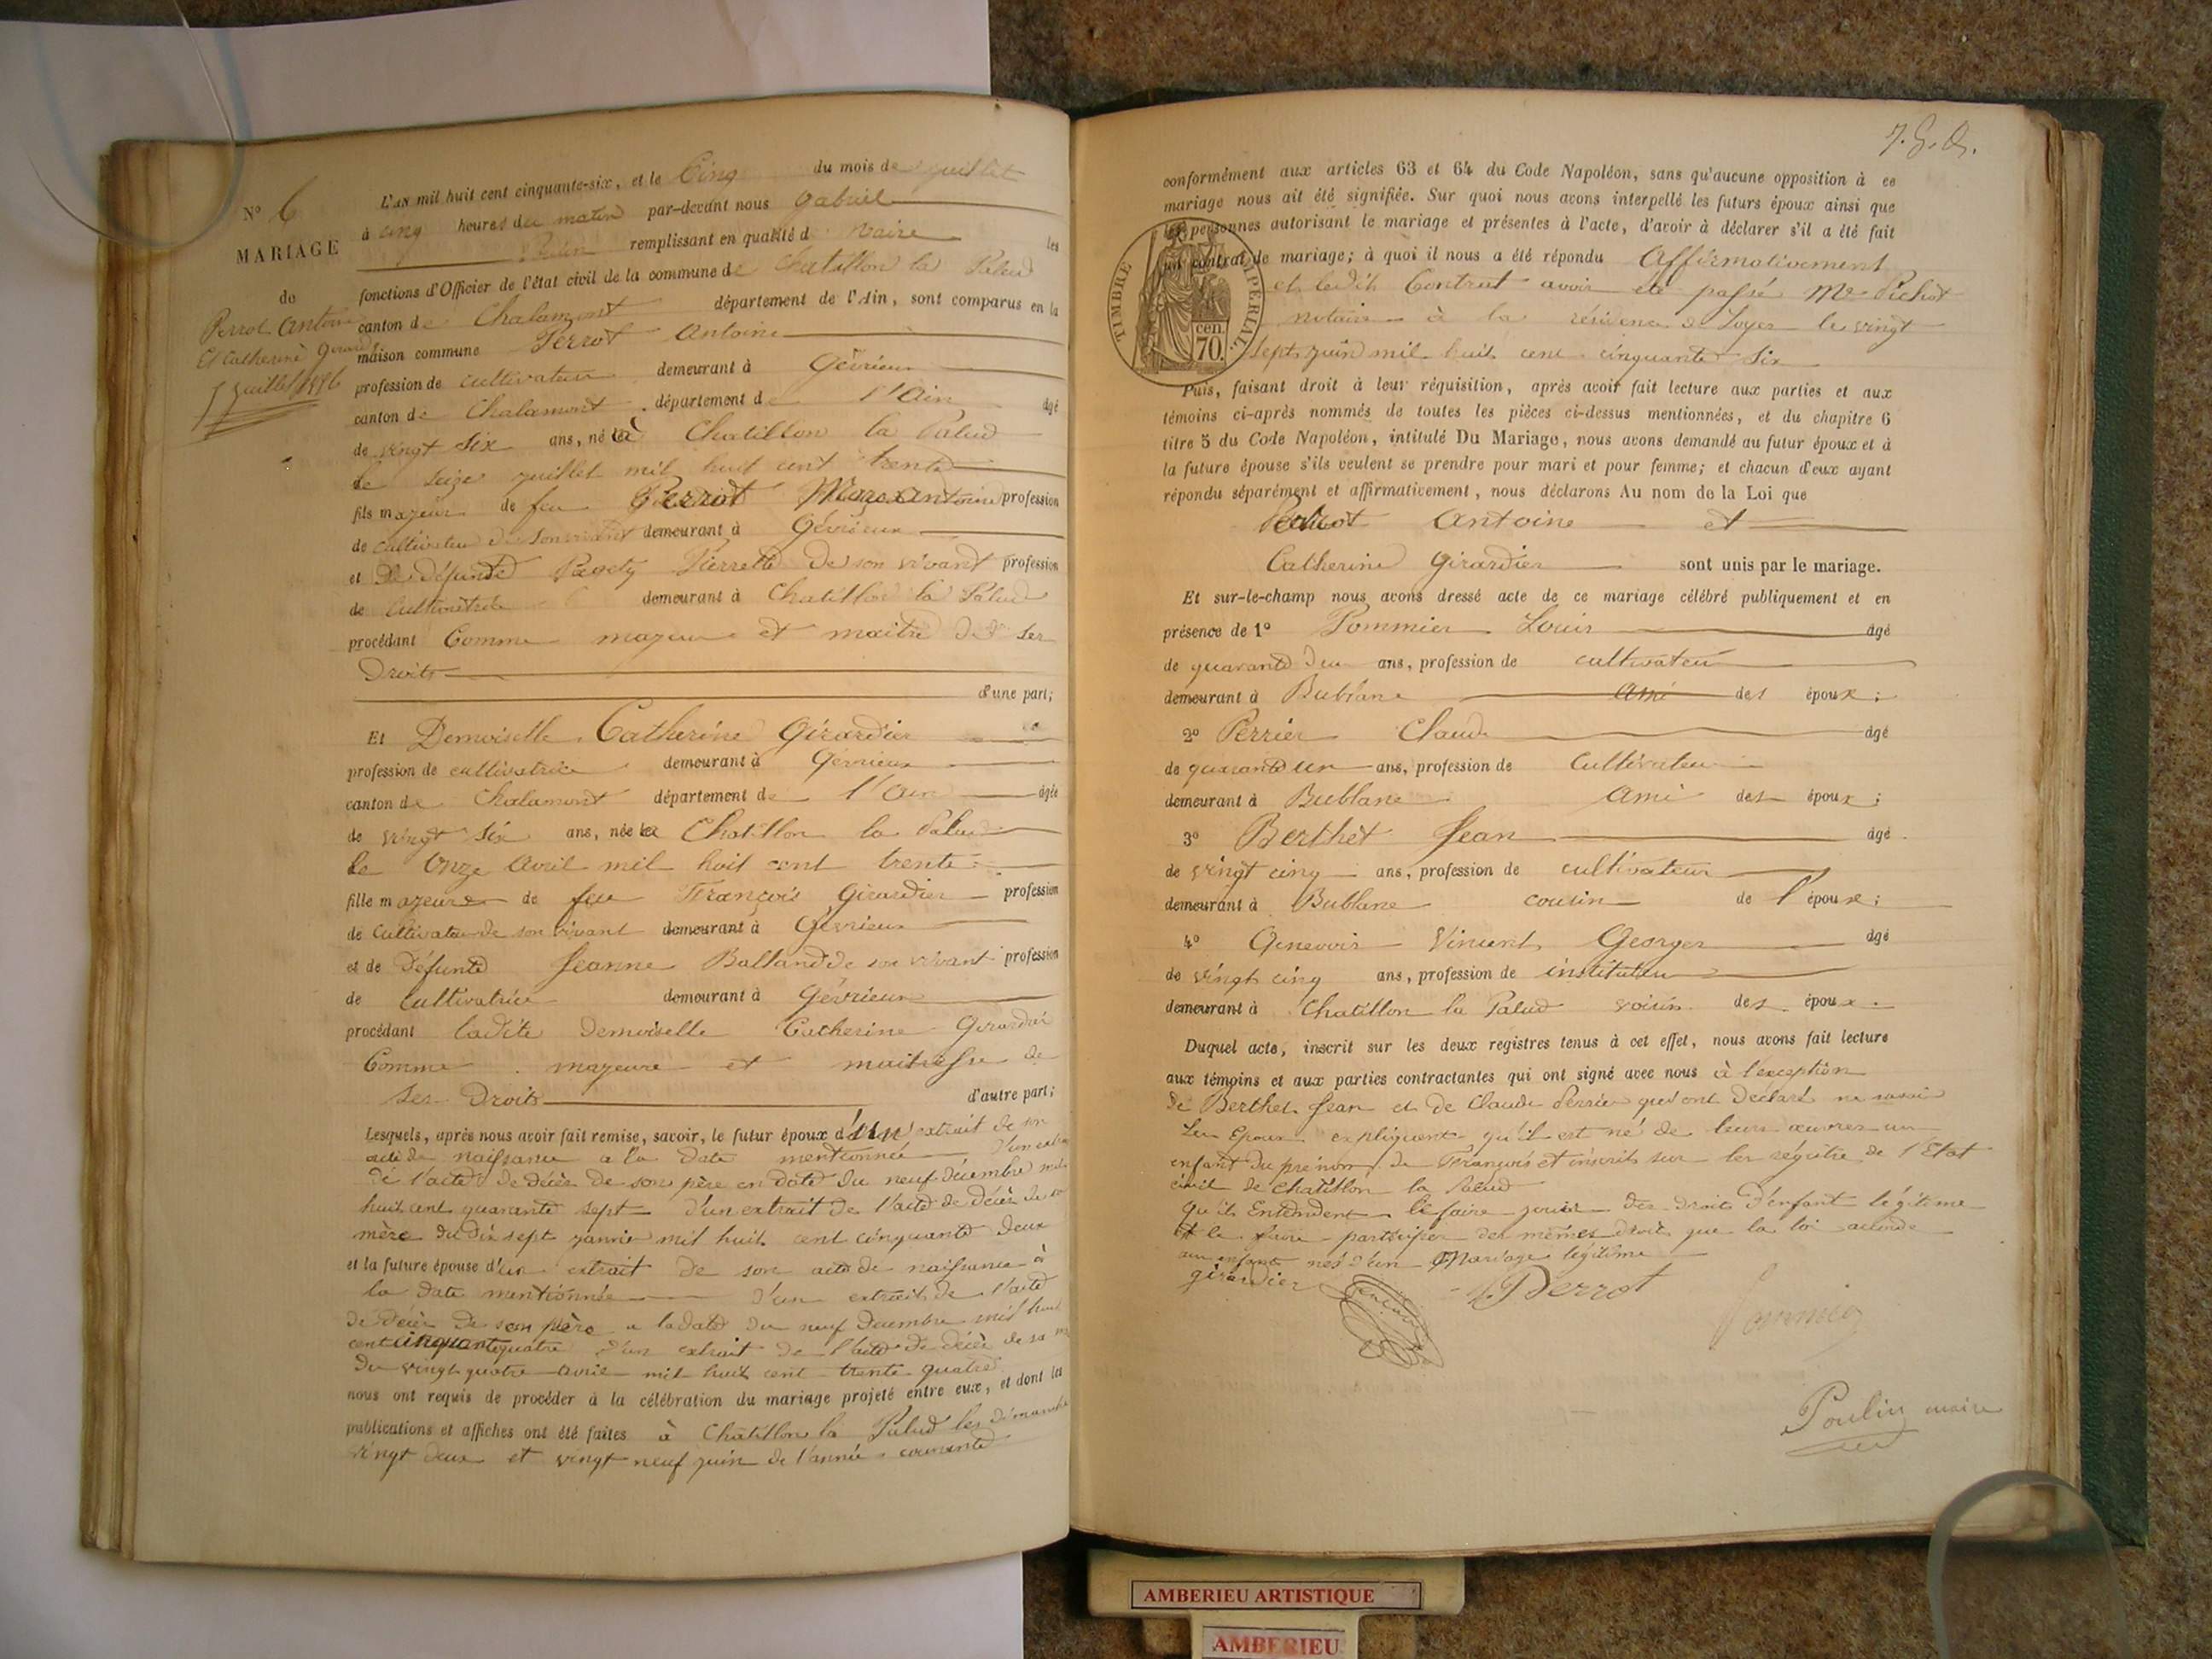 N° 6
MARIAGE
de
Perrot Antoine
Et Catherine Girardier
5 juillet 1856
L'AN mil huit cent cinquante-six, et le Cinq du mois de juillet
à cinq heures du matin par-devant nous Gabriel
remplissant en qualité de Maire les
fonctions d'Officier de l'état civil de la commune de Chatillon la Palud
canton de Chalamont département de l'Ain, sont comparus en la
maison commune Perrot Antoine
profession de cultivateur demeurant à Gévrieux
canton de Chalamont département de l'Ain âgé
de vingt six ans, né à Chatillon la Palud
le seize juillet mil huit cent trente
fils majeur de feu Perrot Antoine profession
de cultivateur de son vivant demeurant à Gévrieux
et de défunte Pierrette de son vivant profession
de Cultivatrice demeurant à Chatillon la Palud
procédant Comme majeur et maitre de ses
Droits
d'une part;
Et Demoiselle Catherine Girardier
profession de cultivatrice demeurant à Gévrieux
canton de Chalamont département de l'Ain âgée
de vingt six ans, née à Chatillon la Palud
le Onze avril mil huit cent trente
fille majeure de feu François Girardier profession
de Cultivateur de son vivant demeurant à Gévrieux
et de Défunte Jeanne Balland de son vivant profession
de Cultivatrice demeurant à Gévrieux
procédant ladite Demoiselle Catherine Girardier
Comme majeure et maitresse de
ses Droits d'autre part;
Lesquels, après nous avoir fait remise, savoir, le futur époux d'un extrait de son
acte de naissance a la date mentionnée d'un extrait
de l'acte de décès de son père en date du neuf décembre mil
huit cent quarante sept d'un extrait de l'acte de décès de sa
mère du dix sept janvier mil huit cent cinquante deux
et la future épouse d'un extrait de son acte de naissance à
la date mentionnée d'un extrait de l'acte
de décès de son père a la date du neuf décembre mil huit
cent cinquante quatre d'un extrait de l'acte de décès de sa
du vingt quatre avril mil huit cent trente quatre
nous ont requis de procéder à la célébration du mariage projeté entre eux, et dont les
publications et affiches ont été faites à Chatillon la Palud les dimanches
vingt deux et vingt neuf juin de l'année courante
conformément aux articles 63 et 64 du Code Napoléon, sans qu'aucune opposition à ce
mariage nous ait été signifiée. Sur quoi nous avons interpellé les futurs époux ainsi que
les personnes autorisant le mariage et présentes à l'acte, d'avoir à déclarer s'il a été fait
un contrat de mariage; à quoi il nous a été répondu Affirmativement
et ledit Contrat avoir été passé Me Pichot
notaire à la résidence de Loyes le vingt
sept juin mil huit cent cinquante six
TIMBRE IMPERIAL
70 cen.
Puis, faisant droit à leur réquisition, après avoir fait lecture aux parties et aux
témoins ci-après nommés de toutes les pièces ci-dessus mentionnées, et du chapitre 6
titre 5 du Code Napoléon, intitulé Du Mariage, nous avons demandé au futur époux et à
la future épouse s'ils veulent se prendre pour mari et pour femme; et chacun d'eux ayant
répondu séparément et affirmativement, nous déclarons Au nom de la Loi que
Perrot Antoine et
Catherine Girardier sont unis par le mariage.
Et sur-le-champ nous avons dressé acte de ce mariage célébré publiquement et en
présence de 1° Pommier Louis âgé
de quarante deux ans, profession de cultivateur
demeurant à Bublane Ami des époux;
2° Perrier Claude âgé
de quarante un ans, profession de Cultivateur
demeurant à Bublane Ami des époux;
3° Berthet Jean âgé
de vingt cinq ans, profession de cultivateur
demeurant à Bublane cousin de l'épouse;
4° Genevois Vincent Georges âgé
de vingt cinq ans, profession de instituteur
demeurant à Chatillon la Palud voisin des époux.
Duquel acte, inscrit sur les deux registres tenus à cet effet, nous avons fait lecture
aux témoins et aux parties contractantes qui ont signé avec nous à l'exception
de Berthet Jean et de Claude Perrier qui ont déclaré ne savoir
Les Epoux expliquent qu'il est né de leurs œuvres un
enfant du prénom de François et inscrit sur les régistre de l'Etat
civil de Chatillon la Palud
qu'ils Entendent le faire jouir des droits d'enfant légitime
Et le faire participer des mêmes droits que la loi accorde
aux enfants nés d'un Mariage légitime
girardier Perrot Pommier
Poulin maire
AMBERIEU ARTISTIQUE
AMBERIEU